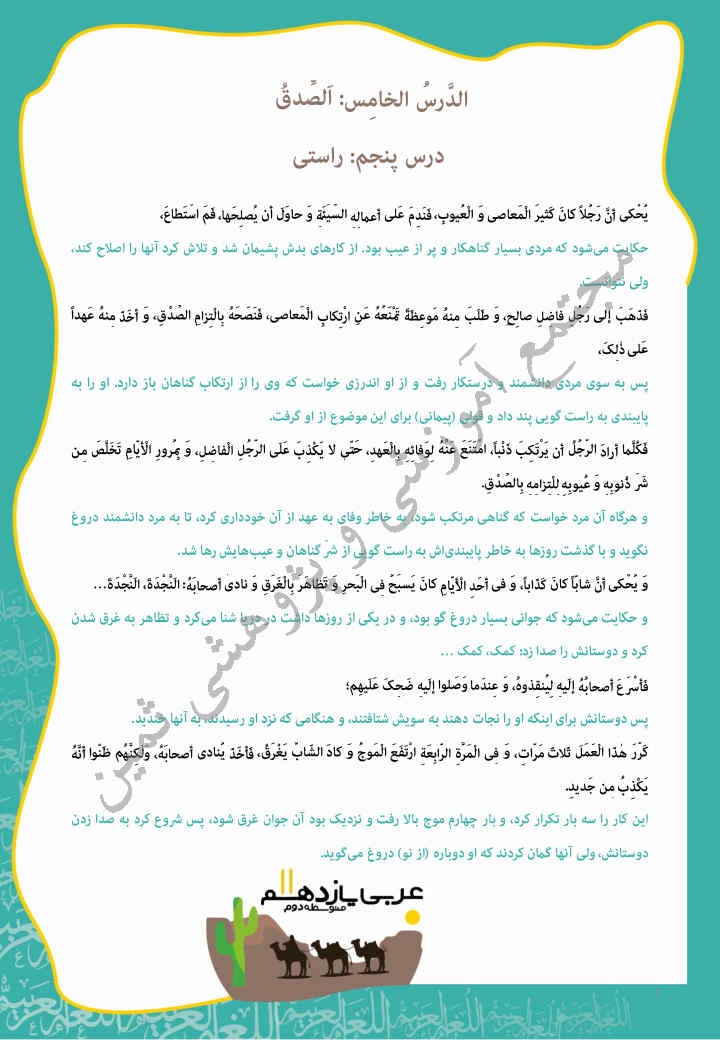 الدَّرسُ الخامِس: اَلصِّدقُ
درس پنجم: راستی
یُحْکی أَنَّ رَجُلاً کانَ کَثیرَ الْمَعاصی وَ الْعُیوبِ، فَنَدِمَ عَلی أعمالِهِ السَّیِّئَةِ وَ حاوَلَ أن یُصلِحَها، فَمَ اسْتَطاعَ،
حکایت می‌شود که مردی بسیار گناهکار و پر از عیب بود. از کارهای بدش پشیمان شد و تلاش کرد آنها را اصلاح کند،
ولی نتوانست.
فَذَهَبَ إلی رَجُلٍ فاضِلٍ صالِحٍ، وَ طَلَبَ مِنهُ مَوعِظَةً تَمْنَعُهُ عَنِ ارْتِکابِ الْمَعاصی، فَنَصَحَهُ بِالْتِزامِ الصِّدْقِ، وَ أخَذَ مِنهُ عَهداً
عَلی ذٰلِکَ،
پس به سوی مردی دانشمند و درستکار رفت و از او اندرزی خواست که وی را از ارتکاب گناهان باز دارد. او را به
پایبندی به راست گویی پند داد و قولی (پیمانی) برای این موضوع از او گرفت.
فَکُلَّما أرادَ الرَّجُلُ أن یَرْتَکِبَ ذَنْباً، امْتَنَعَ عَنْهُ لِوَفائِهِ بِالْعَهدِ، حَتّی لا یَکْذِبَ عَلَی الرَّجُلِ الْفاضِلِ، وَ بِمُرورِ الْأیّامِ تَخَلَّصَ مِن
شَرِّ ذُنوبِهِ وَ عُیوبِهِ لِالْتِزامِهِ بِالصِّدْقِ.
و هرگاه آن مرد خواست که گناهی مرتکب شود، به خاطر وفای به عهد از آن خودداری کرد، تا به مرد دانشمند دروغ
نگوید و با گذشت روزها به خاطر پایبندی‌اش به راست گویی از شرّ گناهان و عیب‌هایش رها شد.
وَ یُحْکی أنَّ شابّاً کانَ کَذّاباً، وَ فی أحَدِ الْأیّامِ کانَ یَسبَحُ فِی الْبَحرِ وَ تَظاهَرَ بِالْغَرَقِ وَ نادی أصحابَهُ: النَّجْدَةَ، النَّجْدَةَ...
و حکایت می‌شود که جوانی بسیار دروغ گو بود، و در یکی از روزها داشت در دریا شنا می‌کرد و تظاهر به غرق شدن
کرد و دوستانش را صدا زد: کمک، کمک ...
فَأسْرَعَ أصحابُهُ إلَیهِ لِیُنقِذوهُ، وَ عِندَما وَصَلوا إلَیهِ ضَحِکَ عَلَیهِم؛
پس دوستانش برای اینکه او را نجات دهند به سویش شتافتند، و هنگامی که نزد او رسیدند، به آنها خندید.
کَرَّرَ هٰذَا الْعَمَلَ ثَلاثَ مَرّاتٍ، وَ فِی الْمَرَّةِ الرّابِعَةِ ارْتَفَعَ الْمَوجُ وَ کادَ الشّابُّ یَغْرَقُ، فَأخَذَ یُنادی أصحابَهُ، وَلٰکِنَّهُم ظَنّوا أنَّهُ
یَکْذِبُ مِن جَدیدٍ.
این کار را سه بار تکرار کرد، و بار چهارم موج بالا رفت و نزدیک بود آن جوان غرق شود، پس شروع کرد به صدا زدن
دوستانش، ولی آنها گمان کردند که او دوباره (از نو) دروغ می‌گوید.
مجتمع آموزشی و پژوهشی ثمین
عربی یازدهم
متوسطه دوم